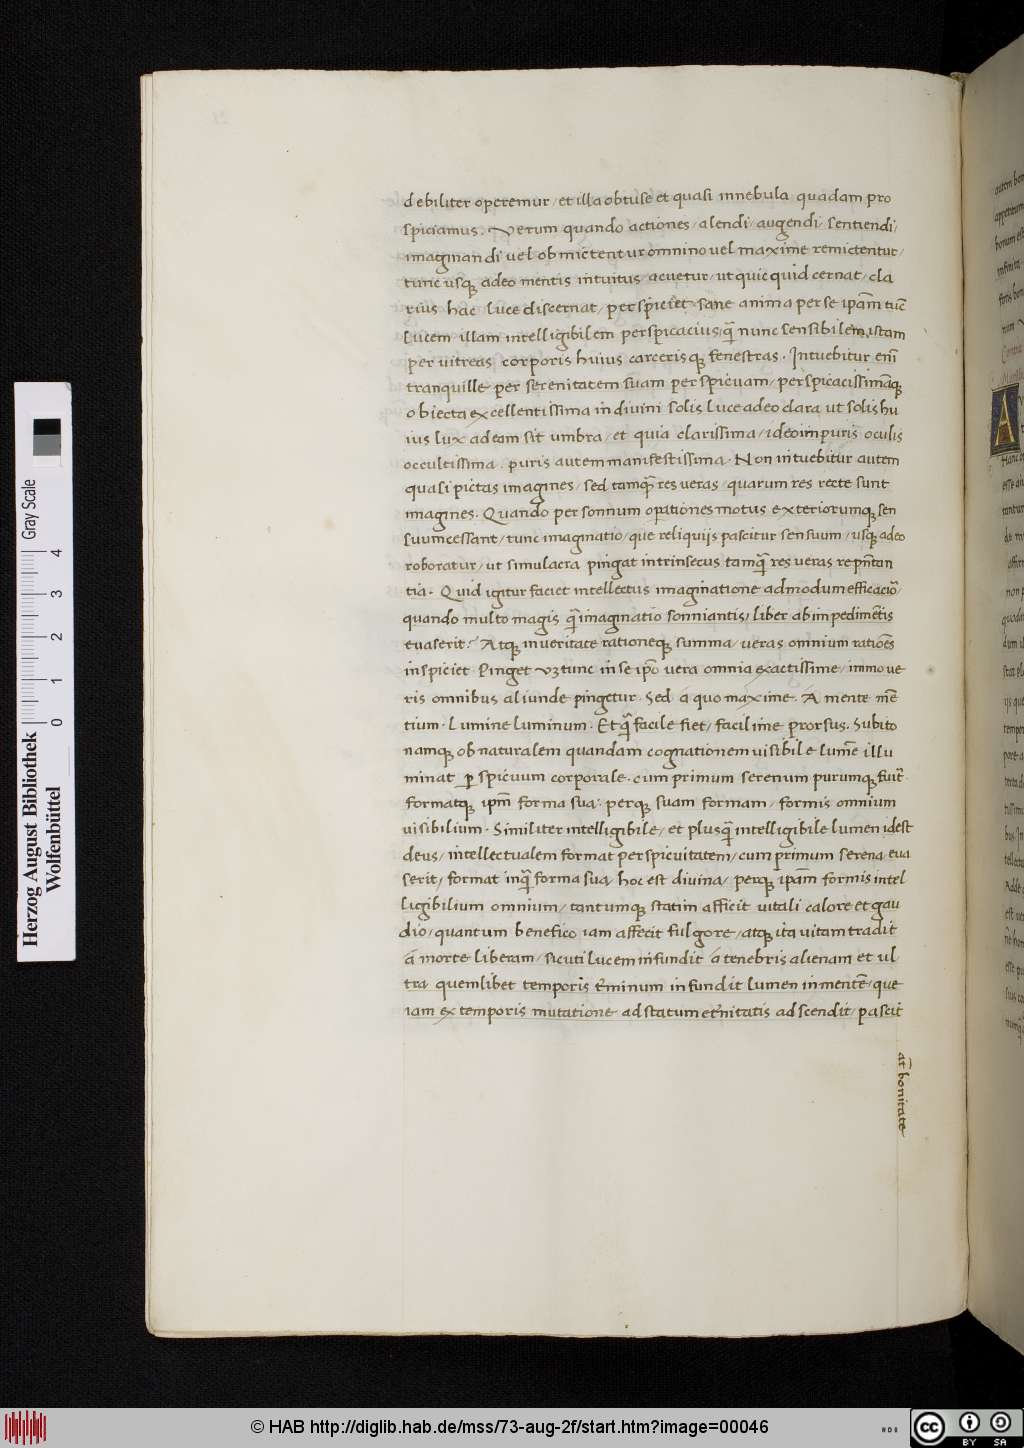 debiliter operemur / et illa obtuse et quasi innebula quadam pro
spiciamus. Verum quando actiones / alendi / augendi / sentiendi /
imaginandi vel obmictentur omnino vel maxime remictentur /
tunc usqꝫ adeo mentis intuitus acuetur / ut quicquid cernat / cla
rius hac luce discernat / perspiciet sane anima per se ipam̄ tūc
lucem illam intelligibilem perspicacius / q̄ nunc sensibilem istam
per vitreas corporis huius carcerisqꝫ fenestras. Intuebitur em̄
tranquille per serenitatem suam perspicuam / perspicacissimaqꝫ
obiecta excellentissima in divini solis luce adeo clara ut solis hu
ius lux ad eam sit umbra / et quia clarissima / ideo impuris oculis
occultissima. puris autem manifestissima. Non intuebitur autem
quasi pictas imagines / sed tamq̄ res veras / quarum res recte sunt
imagines. Quando per somnum opationes motus exteriorumqꝫ sen
suum cessant / tunc imaginatio / que reliquijs pascitur sensuum / usqꝫ adeo
roboratur / ut simulacra pingat intrinsecus tamq̄ res veras repn̄tan
tia. Quid igitur faciet intellectus imaginatione admodum efficacio᷑
quando multo magis q̄ imaginatio somniantis / liber ab impedimētis
evaserit? Atqꝫ in veritate rationeqꝫ summa / veras omnium ratiōes
inspiciet Pinget vꝫ tunc in se ip̄o vera omnia exactissime / immo ve
ris omnibus aliunde pingetur. Sed a quo maxime. A mente mē
tium. Lumine luminum. Et q̄ facile fiet / facilime prorsus. Subito
namqꝫ ob naturalem quandam cognationem visibile lumē illu
minat ꝑspicuum corporale. cum primum serenum purumqꝫ fuit᷑.
formatqꝫ ipm̄ forma sua: perqꝫ suam formam / formis omnium
visibilium. Similiter intelligibile / et plusq̄ intelligibile lumen idest
deus / intellectualem format perspicuitatem / cum primum serena eva
serit / format inq̄ forma sua / hoc est divina / perqꝫ ipam̄ formis intel
ligibilium omnium / tantumqꝫ statim afficit vitali calore et gau
dio / quantum benefico iam affecit fulgore / atqꝫ ita vitam tradit
á morte liberam / sicuti lucem infundit á tenebris alienam et ul
tra quemlibet temporis t̄minum infundit lumen in mentē / que
iam ex temporis mutatione ad statum et̄nitatis adscendit / pascit
at̄ bonitate
Herzog August Bibliothek
Wolfenbüttel
0 1 2 3 4
Gray Scale
© HAB http://diglib.hab.de/mss/73-aug-2f/start.htm?image=00046
cc BY SA